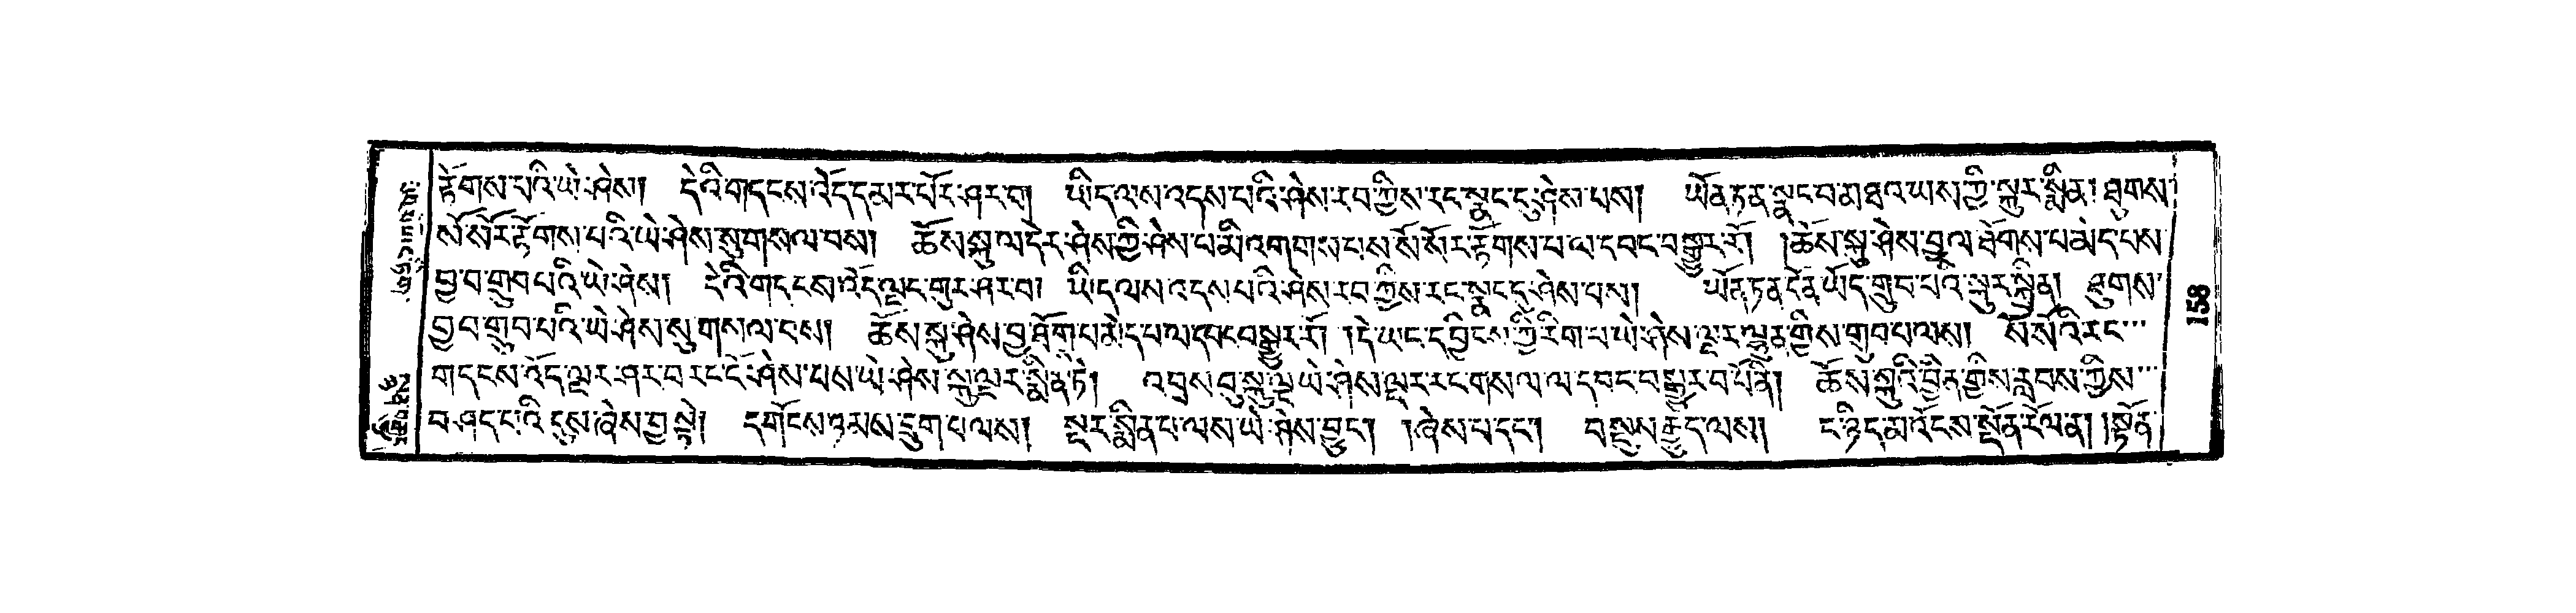 རྟོགས་པའི་ཡེ་ཤེས། དེའི་གདངས་འོད་དམར་པོར་ཤར་བ། ཡིད་ལས་འདས་པའི་ཤེས་རབ་ཀྱིས་རང་སྣང་དུ་ཤེས་པས། ཡོན་ཏན་སྣང་བ་མཐའ་ཡས་ཀྱི་སྐུར་སྨིན། ཐུགས་
སོ་སོར་རྟོགས་པའི་ཡེ་ཤེས་སུ་གསལ་བས། ཆོས་སྐུ་ལ་དེར་ཤེས་ཀྱི་ཤེས་པ་མི་འགགས་པས་སོ་སོར་རྟོགས་པ་ལ་དབང་བསྒྱུར་རོ། །ཆོས་སྐུ་ཤེས་བྱ་ལ་ཐོགས་པ་མེད་པས་
བྱ་བ་གྲུབ་པའི་ཡེ་ཤེས། དེའི་གདངས་འོད་ལྗང་གུར་ཤར་བ། ཡིད་ལས་འདས་པའི་ཤེས་རབ་ཀྱིས་རང་སྣང་དུ་ཤེས་པས། ཡོན་ཏན་དོན་ཡོད་གྲུབ་པའི་སྐུར་སྨིན། ཐུགས་
བྱ་བ་གྲུབ་པའི་ཡེ་ཤེས་སུ་གསལ་བས། ཆོས་སྐུ་ཤེས་བྱ་ཐོགས་པ་མེད་པ་ལ་དབང་བསྒྱུར་རོ། །དེ་ཡང་དབྱིངས་ཀྱི་རིག་པ་ཡེ་ཤེས་ལྔ་ར་ལྷུན་གྱིས་གྲུབ་པ་ལས། སོ་སོའི་རང་
གདངས་འོད་ལྔར་ཤར་བ་རང་ངོ་ཤེས་པས་ཡེ་ཤེས་སྐུ་ལྔར་སྨིན་ཏེ། འབྲས་བུ་སྐུ་ལྔ་ཡེ་ཤེས་ལྔར་རང་གསལ་ལ་དབང་བསྒྱུར་བ་པོ་ནི། ཆོས་སྐུའི་བྱིན་གྱིས་རླབས་ཀྱིས་
བ་ཤད་པའི་དུས་ཞེས་བྱ་སྟེ། དགོངས་ཉམས་དྲུག་པ་ལས། སྔར་སྨིན་པ་ལས་ཡེ་ཤེས་བྱུང། །ཞེས་པ་དང། བསྡུས་རྒྱུད་ལས། ང་ཉིད་མ་འོངས་སྔོན་རོལ་ན། །སྟོན་
158